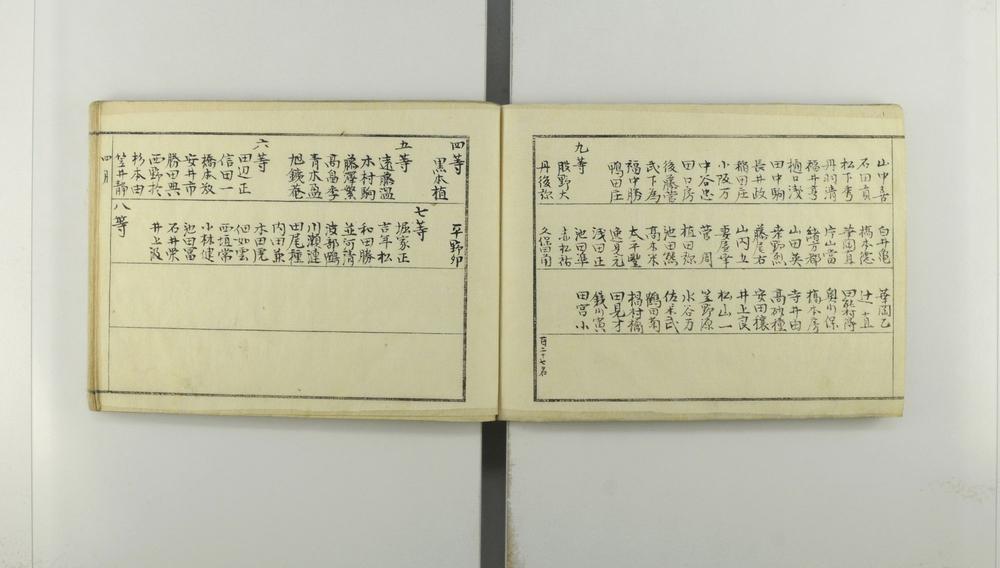 山中喜
石田貞
松下秀
丹羽清
福井喜
樋口浅
田中駒
長井政
稲田庄
小阪万
中谷忠
田口房
後藤菅
武下為
福中勝
鴨田庄
九等
股野大
丹後弥
白井亀
橋本徳
華岡真
片山當
緒方都
山田英
栄野烈
藤尾右
山内立
妻尾幸
菅 周
植田弥
池田熊
高木木
太平豐
速見元
浅田正
池田準
赤松祐
久保田南
華岡乙
辻 直
田能村得
奥川保
橋本房
寺井由
高砂種
安田穣
井上良
松山一
笠野源
水谷万
佐々木武
鶴田菊
楊村橘
田見才
銭川寅
田宮 小
百二十七名
四等
黒本植
五等
遠藤温
木村駒
藤澤紫
高畠季
青木盈
旭鐵菴
六等
田辺正
信田一
橋本政
安井市
勝田興
西野於
杉本由
笠井静
四月
平野卯
七等
堀家正
吉年松
和田勝
並河清
波部鶴
川瀬漣
田尾種
内田求
木田亮
但如雲
西垣常
小林健
池田富
石井栄
井上汲
八等